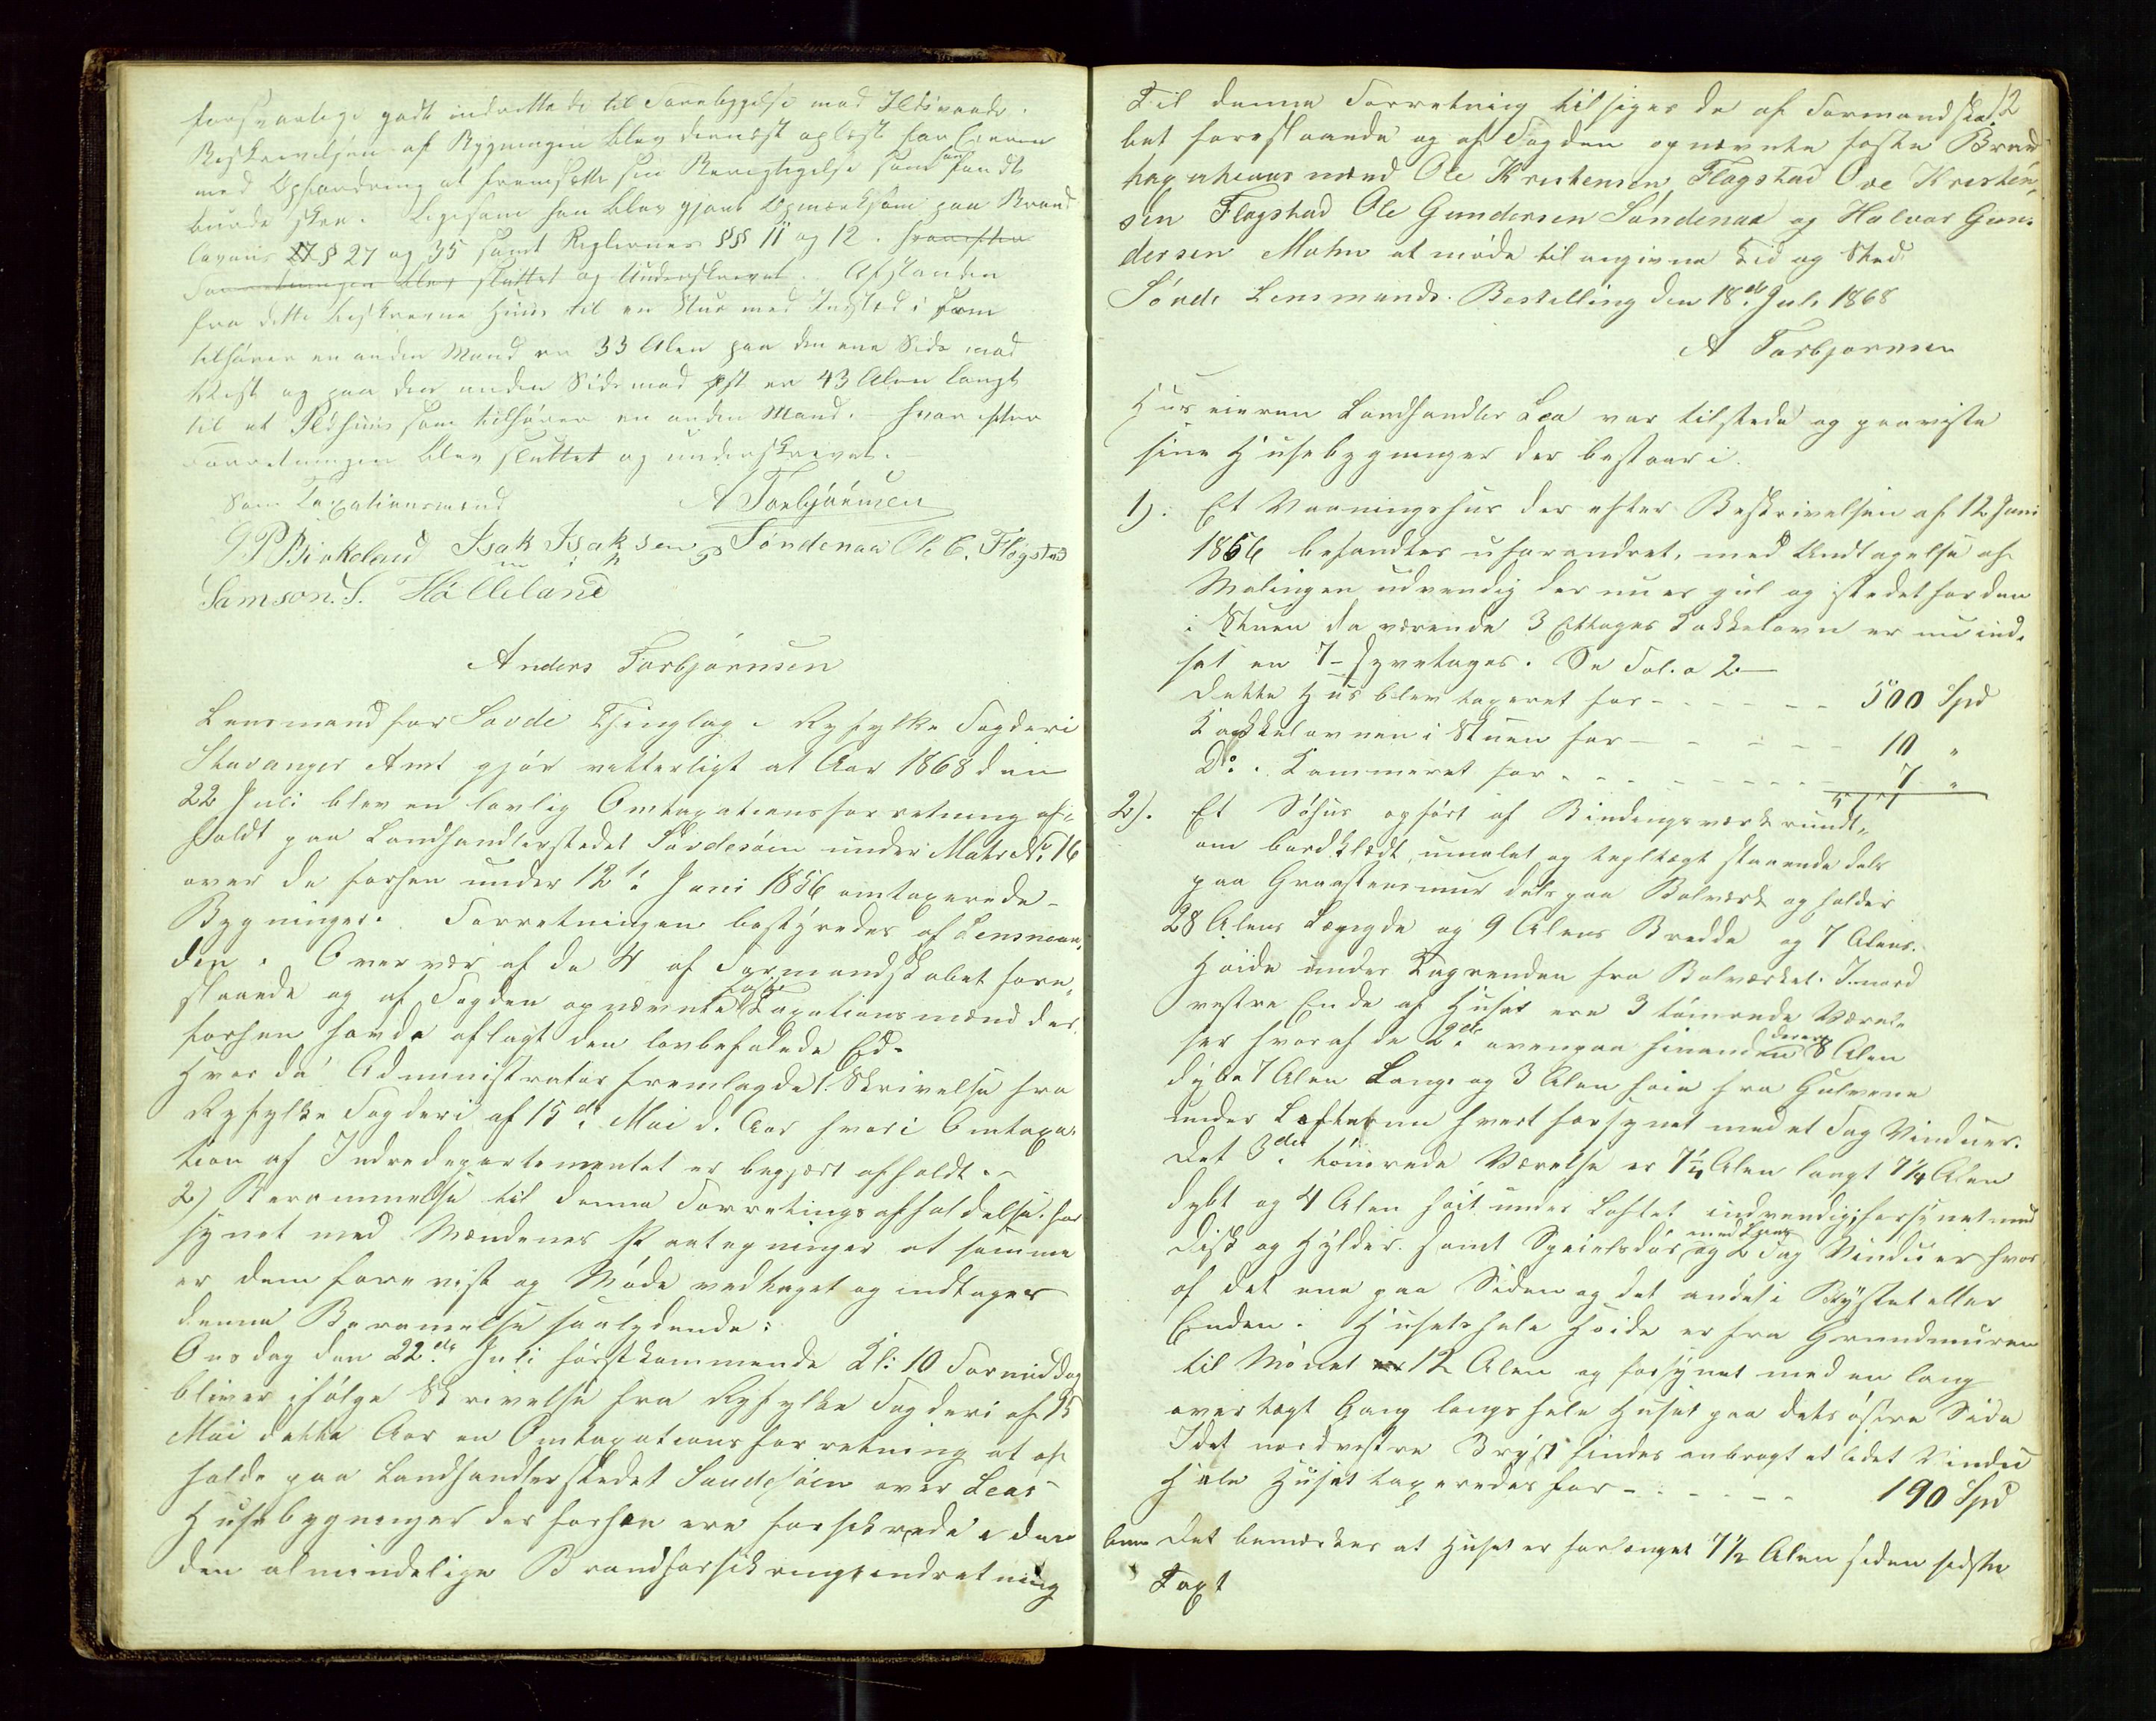 forsvarlige godt indrettede til Forebyggelse mod Ildsvaade.
Beskrivelsen af Bygningen blev dernæst oplæst for Eieren
med Opfordring at fremsætte sin Berigtigelse som han fandt
burde skee. Ligesom han blev gjort opmærksom paa Brand
lovens § 27 og 35 samt Reglernes §§§ 11 og 12. Hvorefter
Forretningen blev sluttet og underskrevet. Afstanden
fra dette beskrevne Huus til en Stue med Ildsted i som
tilhører en anden Mand er 33 Alen paa den ene Side mod
Vest og paa den anden Side mod øst er 43 Alen langt
til et Ildhuus som tilhører en anden Mand. hvorefter
Forretningen blev sluttet og underskrevet.
Som Taxationsmænd A Torbjörnsen
P Birkeland Isak Isaksen Söndenaa Ole C. Flogstad
m i P
Samson. S. Hölleland
Anders Torbjörnsen
Lensmand for Sovde Thinglag i Ryfylke Fogderi
Stavanger Amt gjør vitterligt at Aar 1868 den
22 Juli blev en lovlig Omtaxationsforretning af-
holdt paa Landhandlerstedet Sövdesöen under Matr No 16
over de forhen under 12te Juni 1856 omtaxerede
Bygninger. Forretningen bestyredes af Lensman-
den i Overvær af de 4 af Formandskabet fore-
slaaede og af Fogden opnævnte faste Taxationsmænd der
forhen havde aflagt den lovbefalede Ed.
Hvor da Administrator fremlagde 1. Skrivelse fra
Ryfylke Fogderi af 15de Mai d. Aar hvori Omtaxa-
tion af Indredepartementet er begjært afholdt.
2) Berammelse til denne Forretnings afholdelse for
synet med Mændenes Paategninger at samme
er dem forevist og Møde vedtaget og indtages
denne Berammelse saalydende:
Onsdag den 22de Juli førstkommende Kl: 10 Formiddag
bliver ifølge Skrivelse fra Ryfylke Fogderi af 15
Mai dette Aar en Omtaxationsforretning at af-
holde paa Landhandlerstedet Saudesöen over Leas
Husebygninger der forhen ere forsikrede i den
den almindelige Brandforsikringsindretning
12
Til denne Forretning tilsiges de af Formandska-
bet foreslaaede og af Fogden opnævnte faste Brand
taxationsmænd Ole Kristensen Flogstad Ove Kristen-
sen Flogstad Ole Gundersen Söndenaa og Halvor Gun-
dersen Mohn at møde til angivne Tid og Sted
Sövde Lensmands Bestilling den 18de Juli 1868
A Torbjörnsen
Huseieren Landhandler Lea var tilstede og paaviste
sine Husebygninger der bestaar i
1). Et Vaaningshus der efter Beskrivelsen af 12 Juni
1856 befandtes uforandret, med Undtagelse af
Malingen udvendig der nu er gul og istedetfor den
i Stuen da værende 3 Ettages Kakkelovn er nu ind-
sat en 7- syvetages. Se Fol. a 2
Dette Hus blev taxeret for - - - - - - 500 Spd
Kakkelovnen i Stuen for - - - - 10 "
Do i Kammeret for - - - - - - 7 "
517
2). Et Söhus opført af Bindingsværk rundt
om bordklædt, umalet og tegltagt staaende dels
paa Graastensmur dels paa Bolværk og holder
28 Alens Længde og 9 Alens Bredde og 7 Alens
Høide under Tagrenden fra Bolværket. I nord
vestre Ende af Huset ere 3 tömrede Værel-
ser hvoraf de 2de ovenpaa hinanden der ere 8 Alen
dybe 7 Alen Lange og 3 Alen høie fra Gulvene
under Lofterne hvert forsynet med et Fag Vinduer.
Det 3die tömrede Værelse er 7¼ Alen langt 7¼ Alen
dybt og 4 Alen høit under Loftet indvendig; forsynet med
Disk og Hylder samt Speielsdør og 2 Fag Vinduer hvor
af det ene paa Siden og det andet i Brystet eller
Enden. Husets hele Høide er fra Grundmuren
til Mønet 12 Alen og forsynet med en lang
overtagt Gang langs hele Huset paa dets østre Side
I det nordvestre Bryst findes anbragt et lidet Vindu
Hele Huset taxeredes for - - - - - - 190 Spd
Det bemærkes at Huset er forlænget 7½ Alen siden sidste
Taxt